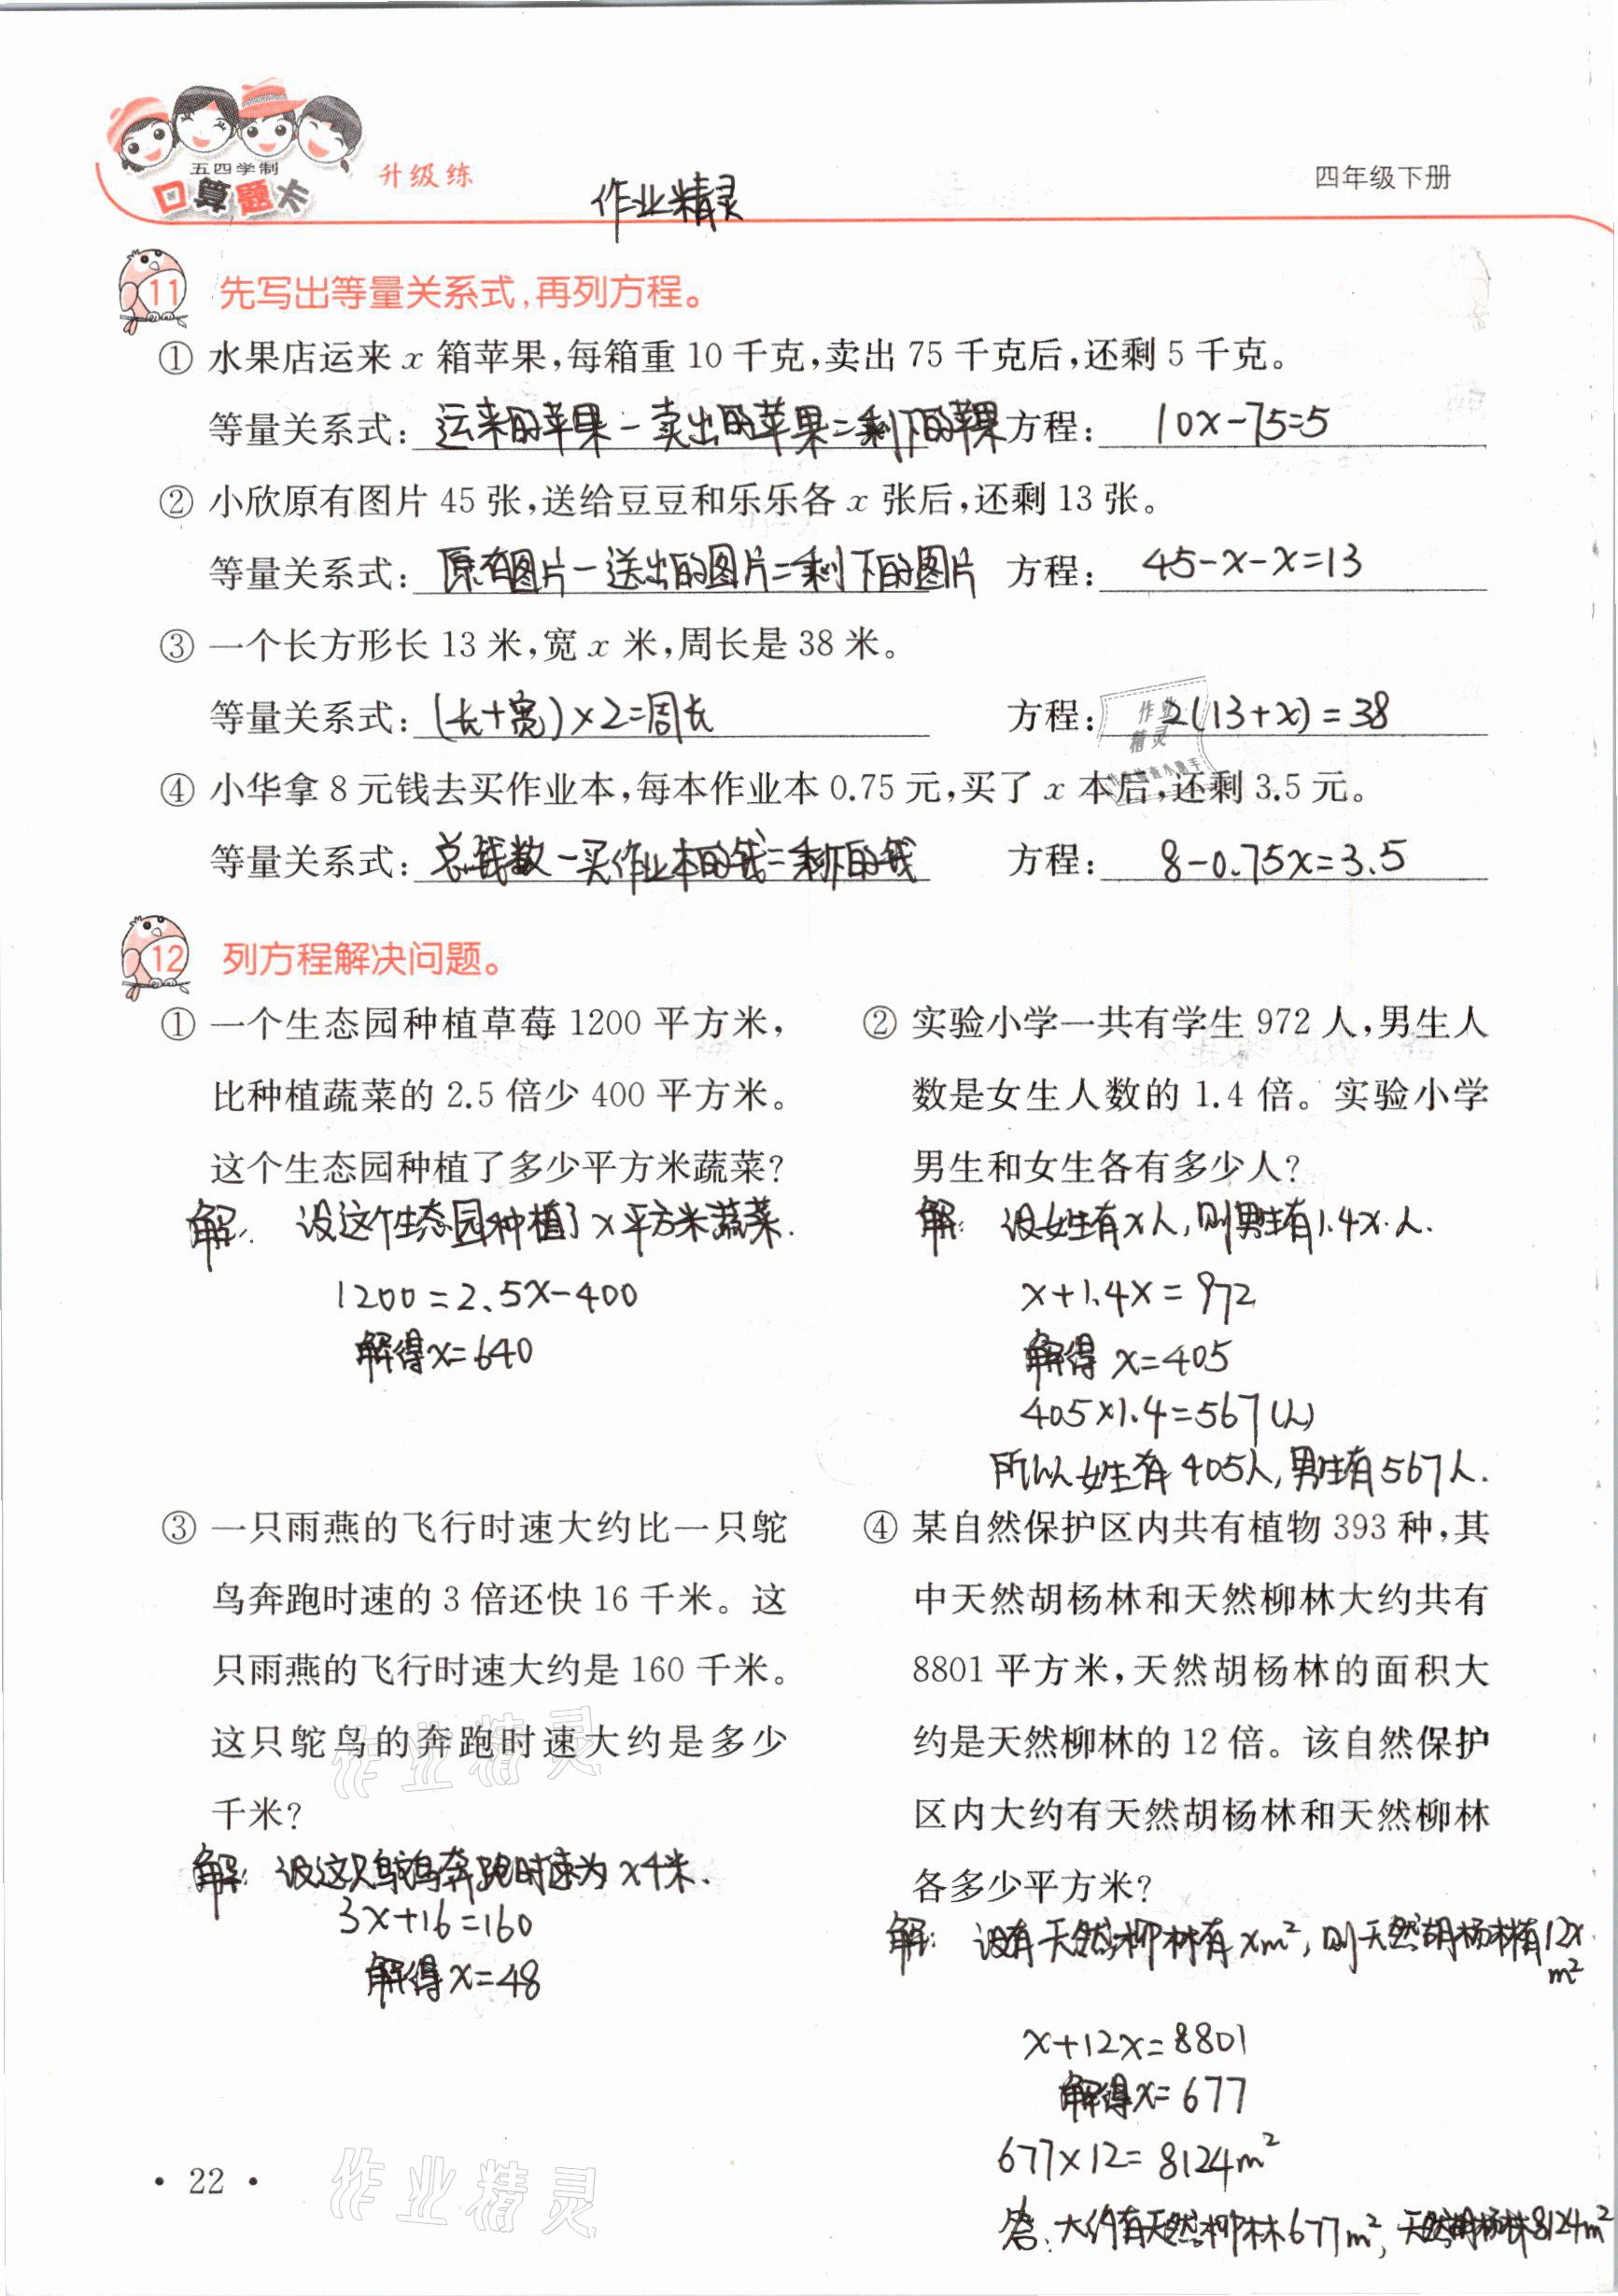 五四学制
口算题卡
升级练
作业精灵
四年级下册
11 先写出等量关系式,再列方程。
① 水果店运来 x 箱苹果,每箱重 10 千克,卖出 75 千克后,还剩 5 千克。
等量关系式: 运来的苹果－卖出的苹果=剩下的苹果 方程: 10x-75=5
② 小欣原有图片 45 张,送给豆豆和乐乐各 x 张后,还剩 13 张。
等量关系式: 原有图片－送出的图片=剩下的图片 方程: 45-x-x=13
③ 一个长方形长 13 米,宽 x 米,周长是 38 米。
等量关系式: (长+宽)×2=周长 方程: 2(13+x)=38
作业
精灵
作业检查小助手
④ 小华拿 8 元钱去买作业本,每本作业本 0.75 元,买了 x 本后,还剩 3.5 元。
等量关系式: 总钱数－买作业本的钱=剩下的钱 方程: 8-0.75x=3.5
12 列方程解决问题。
① 一个生态园种植草莓 1200 平方米,
比种植蔬菜的 2.5 倍少 400 平方米。
这个生态园种植了多少平方米蔬菜?
解: 设这个生态园种植了x平方米蔬菜.
1200=2.5x-400
解得x=640
② 实验小学一共有学生 972 人,男生人
数是女生人数的 1.4 倍。实验小学
男生和女生各有多少人?
解: 设女生有x人,则男生有1.4x人.
x+1.4x=972
解得 x=405
405×1.4=567(人)
所以女生有405人,男生有567人.
③ 一只雨燕的飞行时速大约比一只鸵
鸟奔跑时速的 3 倍还快 16 千米。这
只雨燕的飞行时速大约是 160 千米。
这只鸵鸟的奔跑时速大约是多少
千米?
解: 设这只鸵鸟奔跑时速为x千米.
3x+16=160
解得x=48
④ 某自然保护区内共有植物 393 种,其
中天然胡杨林和天然柳林大约共有
8801 平方米,天然胡杨林的面积大
约是天然柳林的 12 倍。该自然保护
区内大约有天然胡杨林和天然柳林
各多少平方米?
解: 设有天然柳林有xm²,则天然胡杨林有12x
m²
x+12x=8801
解得x=677
677×12=8124m²
答:大约有天然柳林677m²,天然胡杨林8124m²
作业精灵
作业精灵
· 22 ·